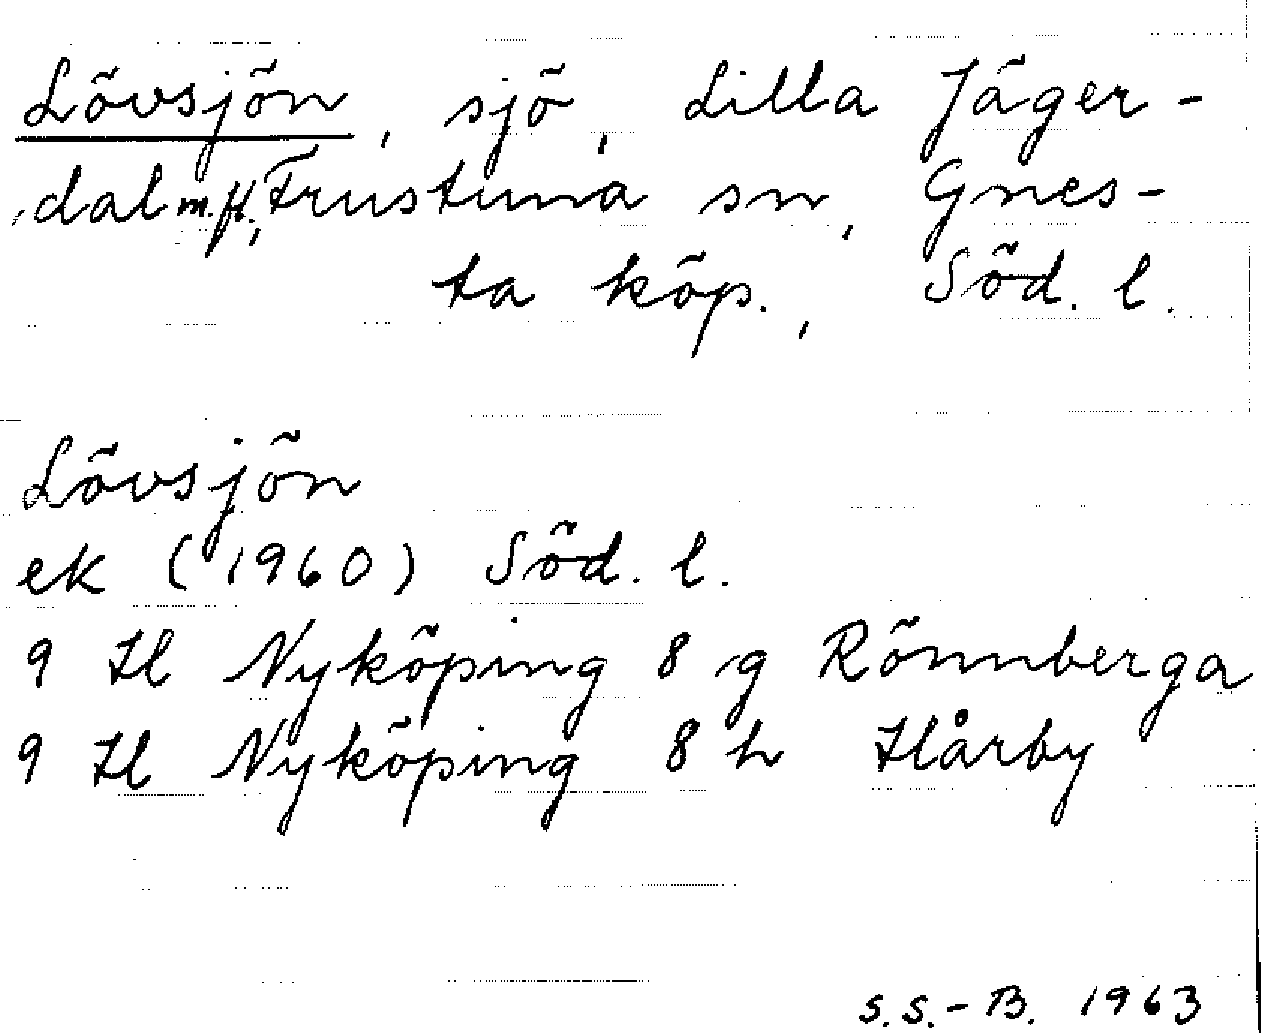 Lövsjön, sjö, Lilla Jäger-
dal m.fl., Frustuna sn, Gnes-
ta köp., Söd. l.
Lövsjön
ek (1960) Söd. l.
9 H Nyköping 8 g Rönnberga
9 H Nyköping 8 h Hårby
S.S.-B. 1963